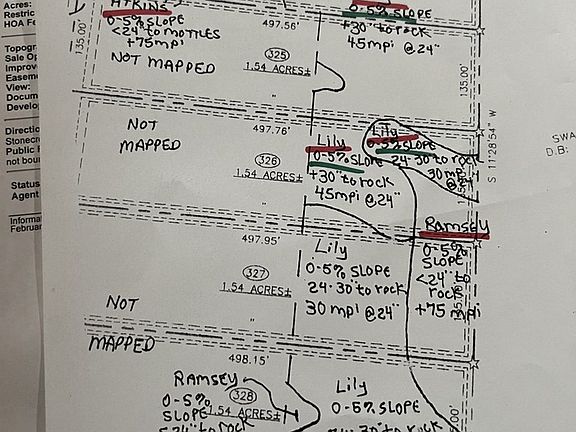 Acres:
Restric
HO Fe
Topogr
Sale Op
Improv
Easeme
View:
Docum
Develo
Directio
Stonecr
Public
not bour
Status
Agent
Informat
Februar
ATKINS
0-5% SLOPE
<24" to MOTTLES
+75mpi
NOT MAPPED
135.00'
497.56'
325
1.54 ACRES±
0-5% SLOPE
+30" to rock
45mpi @24"
135.00'
NOT
MAPPED
497.76'
326
1.54 ACRES±
Lily
0-5% SLOPE
+30" to rock
45mpi @24"
Lily
0-5% SLOPE
24-30 to rock
30 mpi
@24"
S 11°28'54" W
SWA
D.B:
497.95'
327
1.54 ACRES±
NOT
MAPPED
Lily
0-5% SLOPE
24-30" to rock
30 mpi @24"
RAMSEY
0-5%
SLOPE
<24" to
rock
+75 mpi
498.15'
RAMSEY
0-5%
SLOPE
328
1.54 ACRES±
Lily
0-5% SLOPE